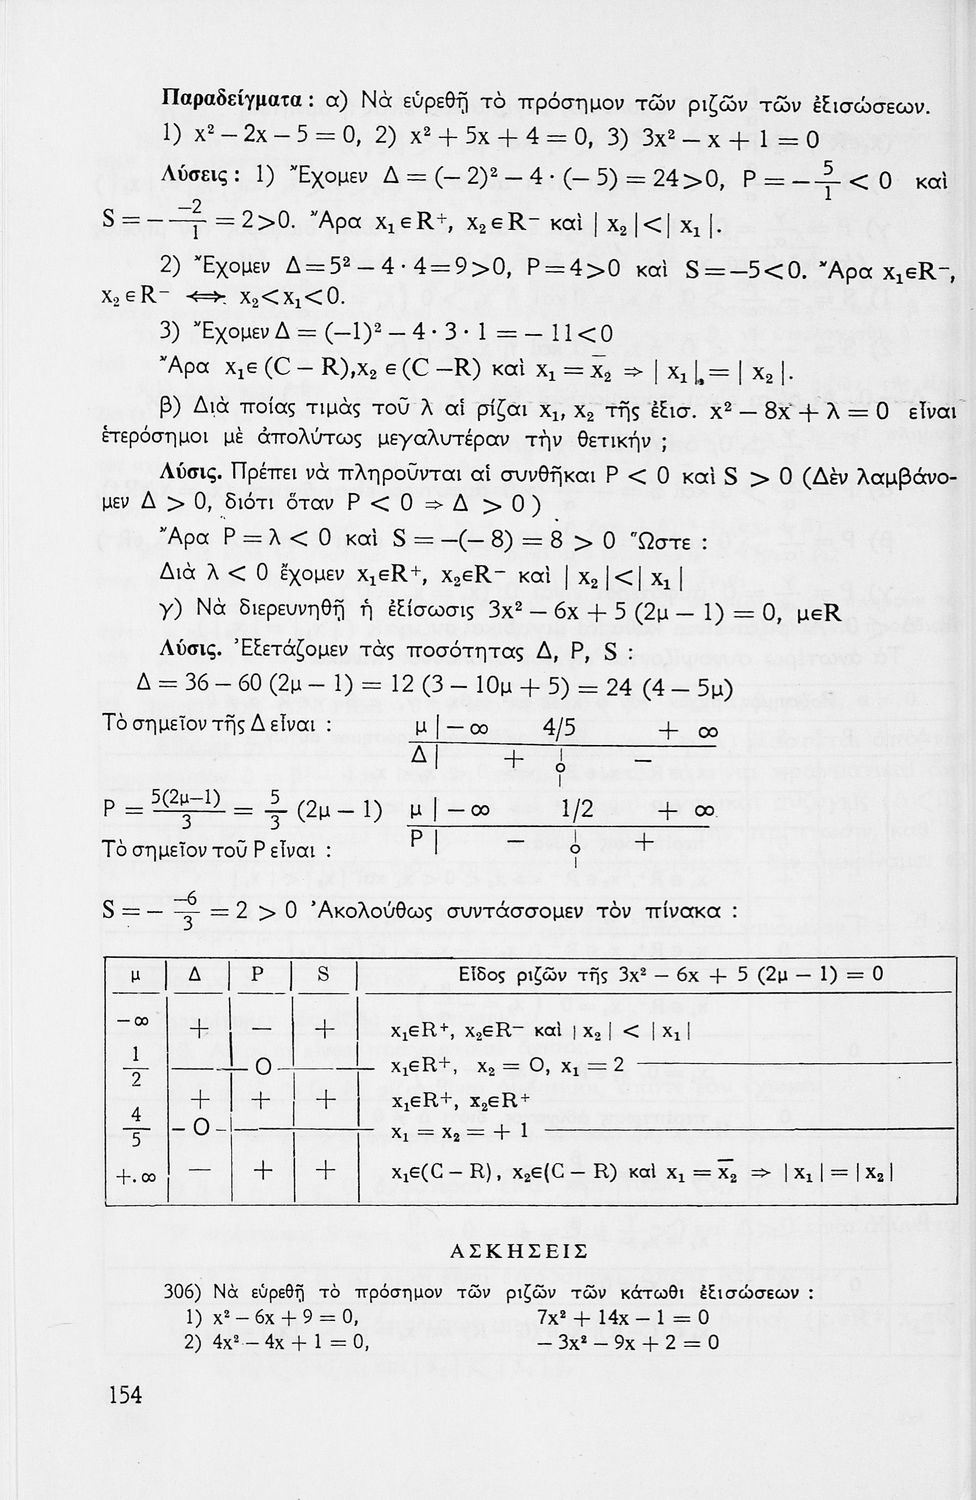 Παραδείγματα : α) Νὰ εὑρεθῇ τὸ πρόσημον τῶν ριζῶν τῶν ἐξισώσεων.
1) x² – 2x – 5 = 0, 2) x² + 5x + 4 = 0, 3) 3x² – x + 1 = 0
Λύσεις : 1) Ἔχομεν Δ = (– 2)² – 4 · (– 5) = 24>0, P = – –5/1 < 0 καὶ
S = – –2/1 = 2>0. Ἄρα x₁εR⁺, x₂εR⁻ καὶ | x₂ |<| x₁ |.
2) Ἔχομεν Δ=5² – 4 · 4=9>0, P=4>0 καὶ S=–5<0. Ἄρα x₁εR⁻,
x₂εR⁻ ⟺ x₂<x₁<0.
3) Ἔχομεν Δ = (–1)² – 4 · 3 · 1 = – 11<0
Ἄρα x₁ε (C – R),x₂ ε (C –R) καὶ x₁ = x̄₂ ⇒ | x₁ | = | x₂ |.
β) Διὰ ποίας τιμὰς τοῦ λ αἱ ρίζαι x₁, x₂ τῆς ἐξισ. x² – 8x + λ = 0 εἶναι
ἑτερόσημοι μὲ ἀπολύτως μεγαλυτέραν τὴν θετικήν ;
Λύσις. Πρέπει νὰ πληροῦνται αἱ συνθῆκαι P < 0 καὶ S > 0 (Δὲν λαμβάνο-
μεν Δ > 0, διότι ὅταν P < 0 ⇒ Δ > 0 )
Ἄρα P = λ < 0 καὶ S = –(– 8) = 8 > 0 Ὥστε :
Διὰ λ < 0 ἔχομεν x₁εR⁺, x₂εR⁻ καὶ | x₂ |<| x₁ |
γ) Νὰ διερευνηθῇ ἡ ἐξίσωσις 3x² – 6x + 5 (2μ – 1) = 0, μεR
Λύσις. Ἐξετάζομεν τὰς ποσότητας Δ, P, S :
Δ = 36 – 60 (2μ – 1) = 12 (3 – 10μ + 5) = 24 (4 – 5μ)
Τὸ σημεῖον τῆς Δ εἶναι : μ | – ∞ 4/5 + ∞
Δ | + 0 –
P = 5(2μ–1)/3 = 5/3 (2μ – 1) μ | – ∞ 1/2 + ∞
Τὸ σημεῖον τοῦ P εἶναι : P | – 0 +
S = – –6/3 = 2 > 0 Ἀκολούθως συντάσσομεν τὸν πίνακα :
μ Δ P S Εἶδος ριζῶν τῆς 3x² – 6x + 5 (2μ – 1) = 0
–∞ + – + x₁εR⁺, x₂εR⁻ καὶ | x₂ | < | x₁ |
1/2 0 x₁εR⁺, x₂ = 0, x₁ = 2
+ + + x₁εR⁺, x₂εR⁺
4/5 0 x₁ = x₂ = + 1
+∞ – + + x₁ε(C – R), x₂ε(C – R) καὶ x₁ = x̄₂ ⇒ | x₁ | = | x₂ |
ΑΣΚΗΣΕΙΣ
306) Νὰ εὑρεθῇ τὸ πρόσημον τῶν ριζῶν τῶν κάτωθι ἐξισώσεων :
1) x² – 6x + 9 = 0, 7x² + 14x – 1 = 0
2) 4x² – 4x + 1 = 0, – 3x² – 9x + 2 = 0
154